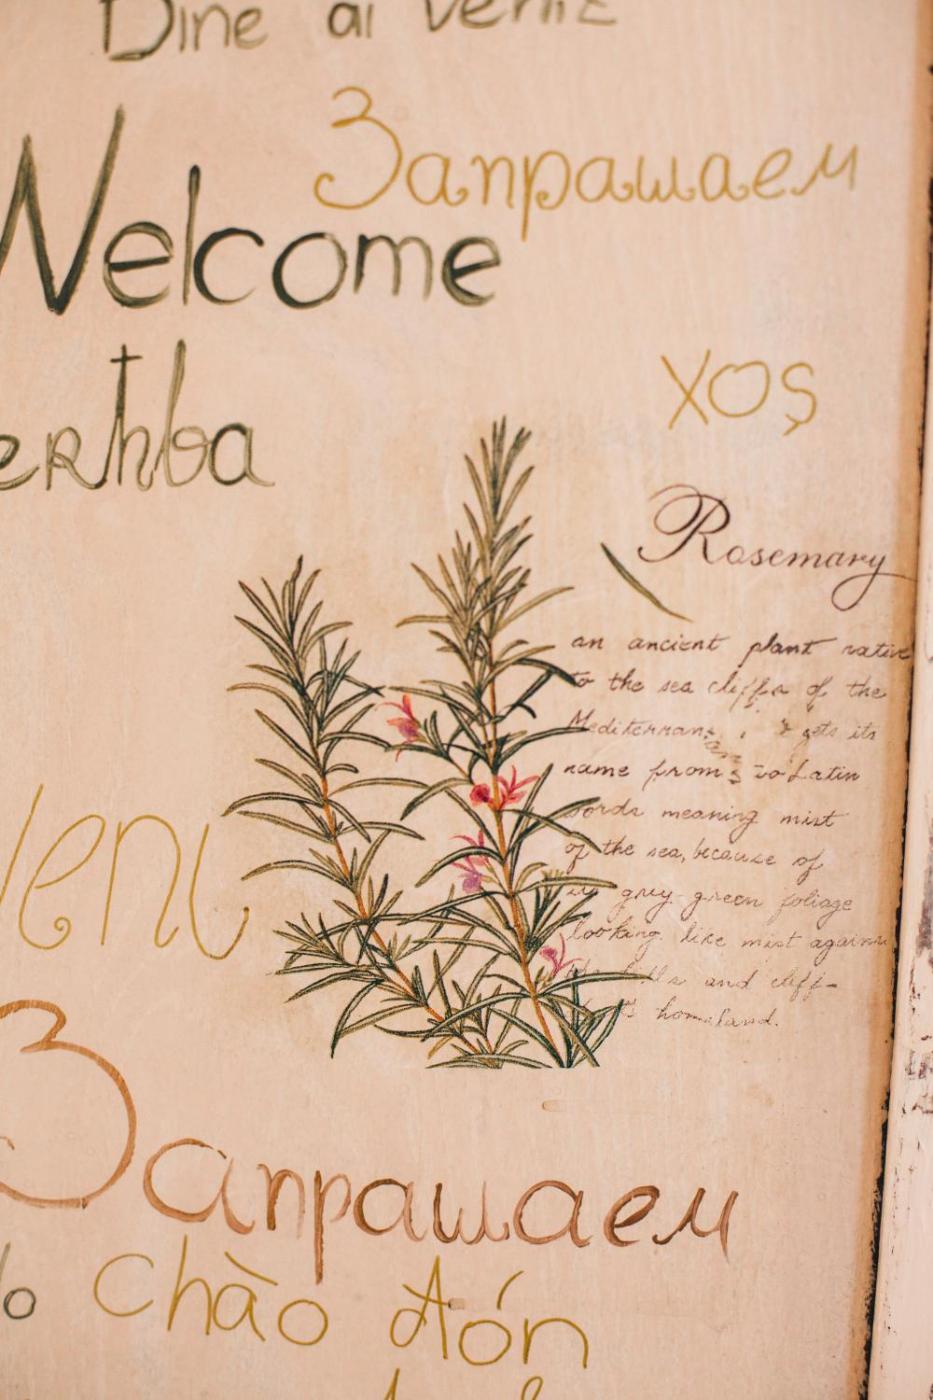 Bine ai venit
Запрашаем
Welcome
xoş
Rosemary
an ancient plant native
to the sea cliffs of the
gets its
name from Latin
words meaning mist
of the sea, because of
grey-green foliage
looking like mist against
and cliff-
homeland.
veni
Запрашаем
Chào đón